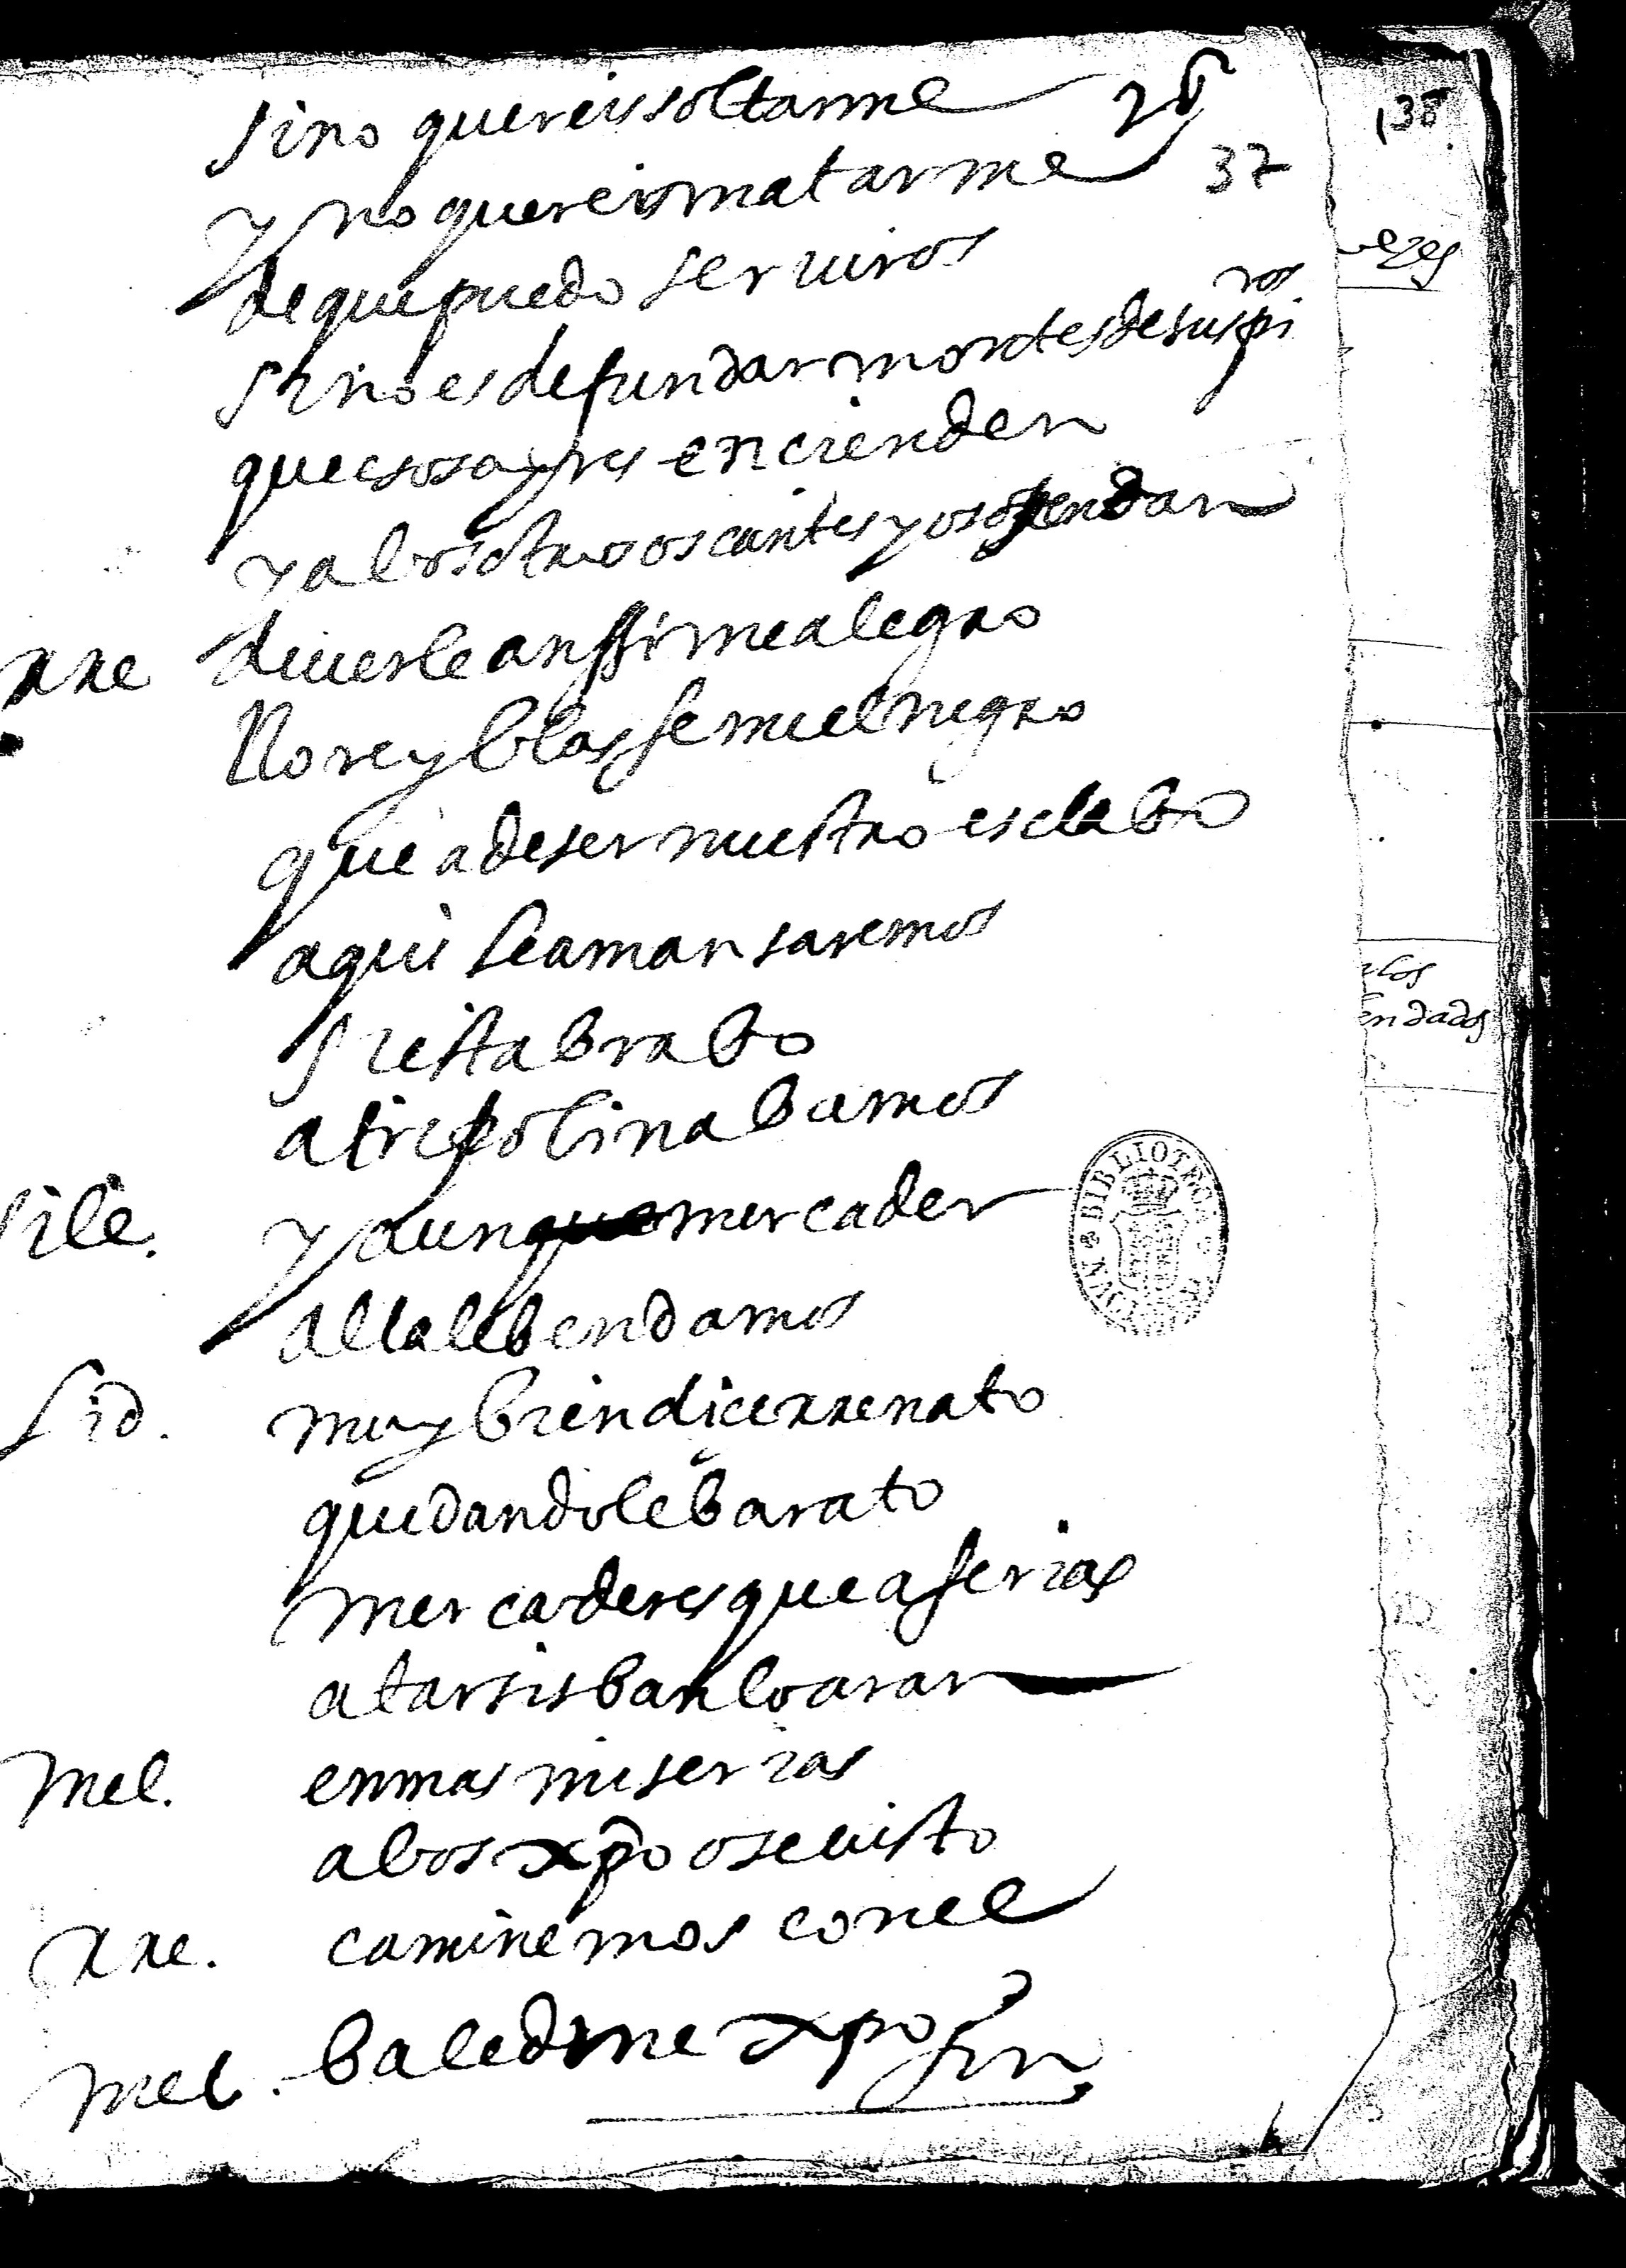 sino quereis soltarme 28
y no quereis matarme 37
de que puedo seruiros
si no es de fundar montes de suspiros
que esos ayres encienden
y a bosotros os canten y os ofendan
rre de uerle anssi me alegro
llore y blasfeme el negro
que a de ser nuestro esclabo
aqui le amansaremos
si esta brabo
a tripolina bamos
sile. y a un mercader
alla le bendamos
sid. muy bien dice rrenato
que dandole barato
mercaderes que a ferias
a tarsis ban lo aran
mel. en mas miserias
a bos xpo os e uisto
rre. caminemos con el
mel. baledme xpo
fin
138
vezes
los
endados
BIBLIOTECA